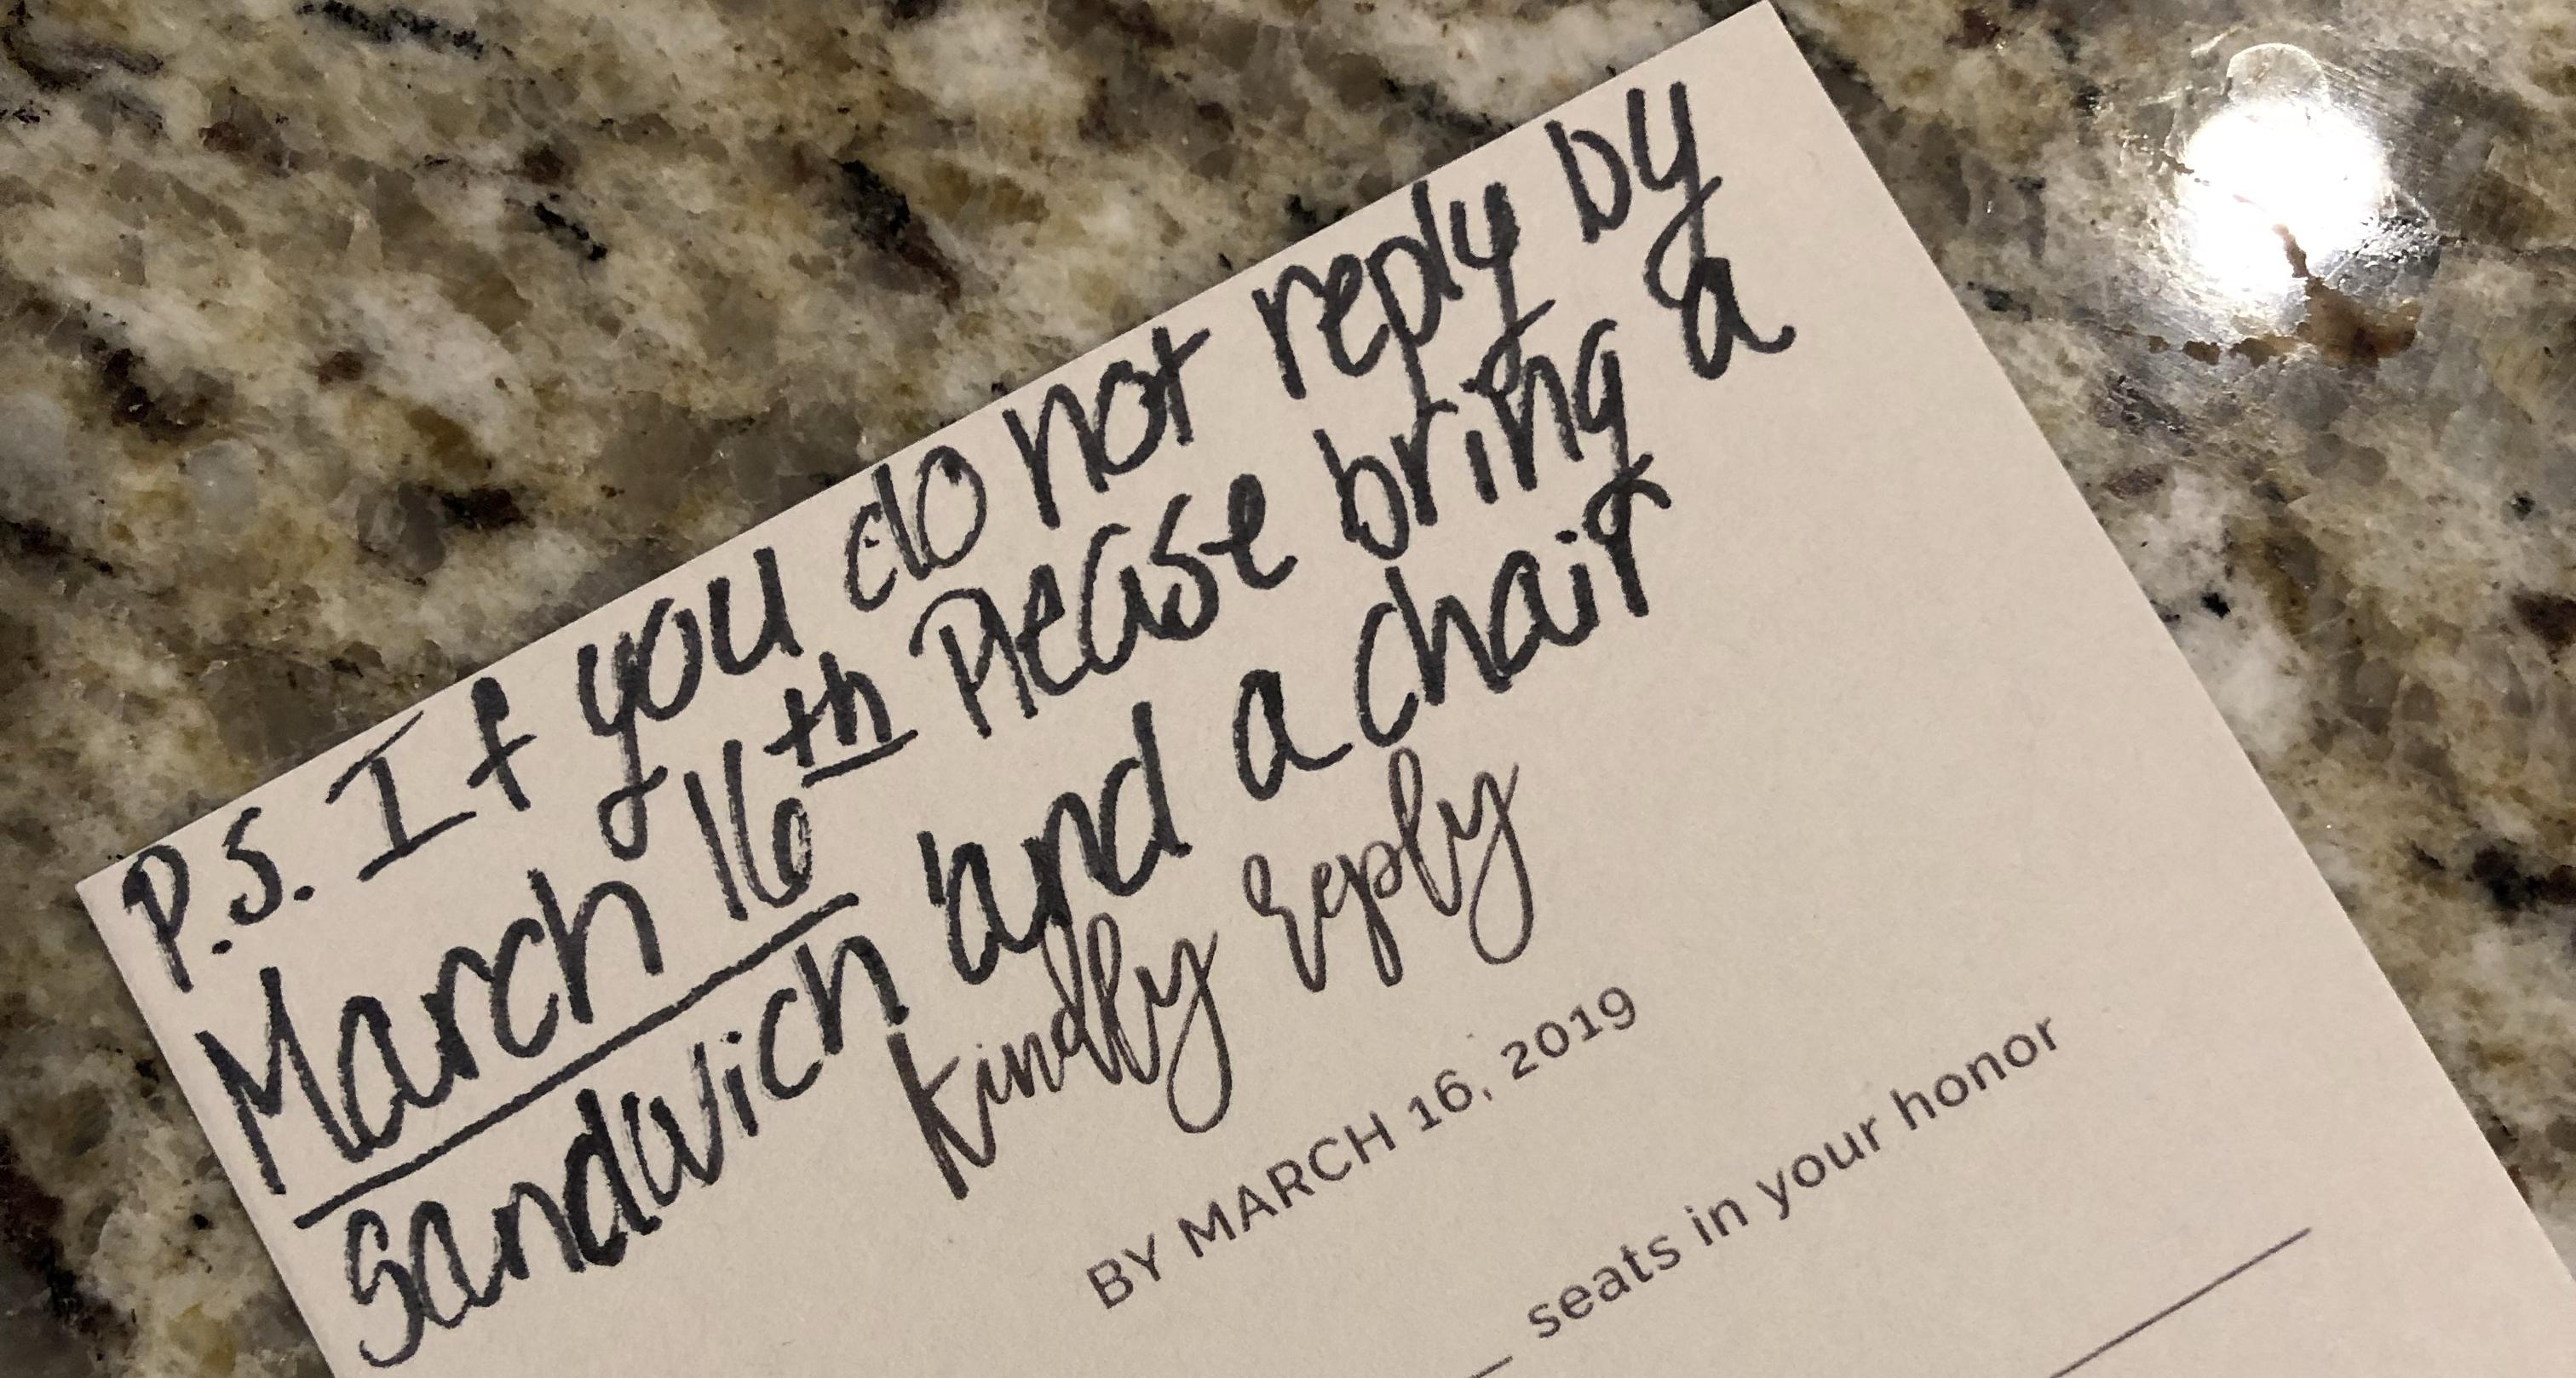 P.S. If you do not reply by
March 16th Please bring a
Sandwich and a chair
kindly reply
BY MARCH 16, 2019
seats in your honor